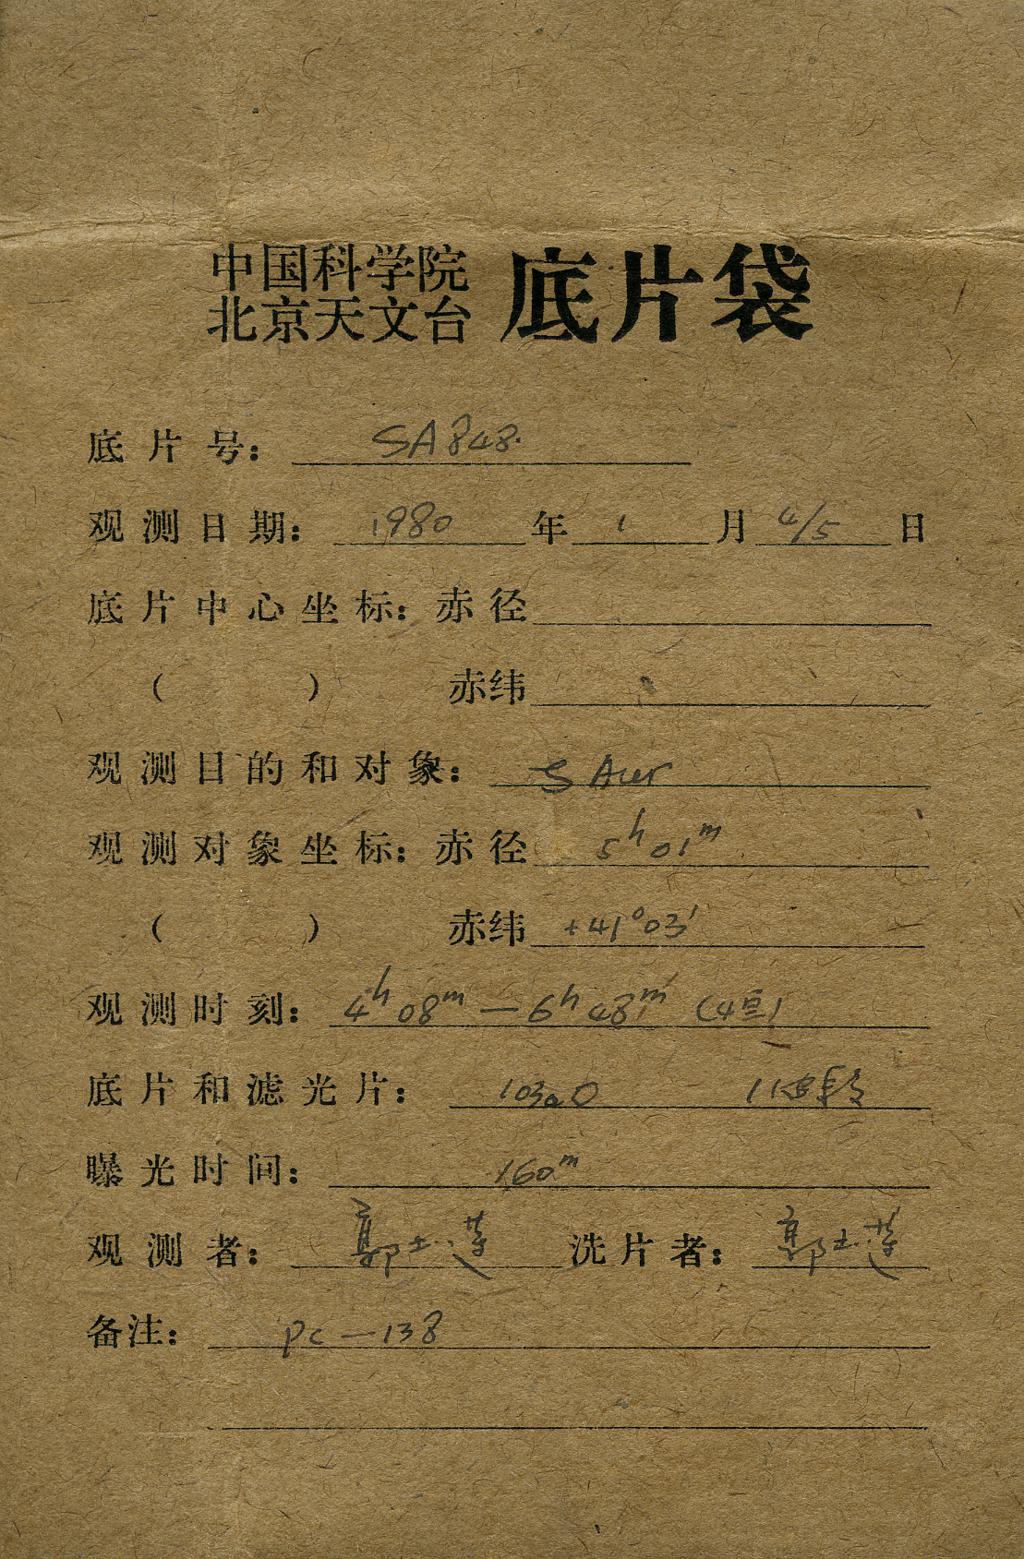 中国科学院
北京天文台 底片袋
底片号: SA848
观测日期: 1980 年 1 月 4/5 日
底片中心坐标: 赤径
( ) 赤纬
观测目的和对象: S Aur
观测对象坐标: 赤径 5h01m
( ) 赤纬 +41°03′
观测时刻: 4h08m—6h48m
底片和滤光片: 103aO
曝光时间: 160m
观测者: 郭 洗片者: 郭
备注: pc—138